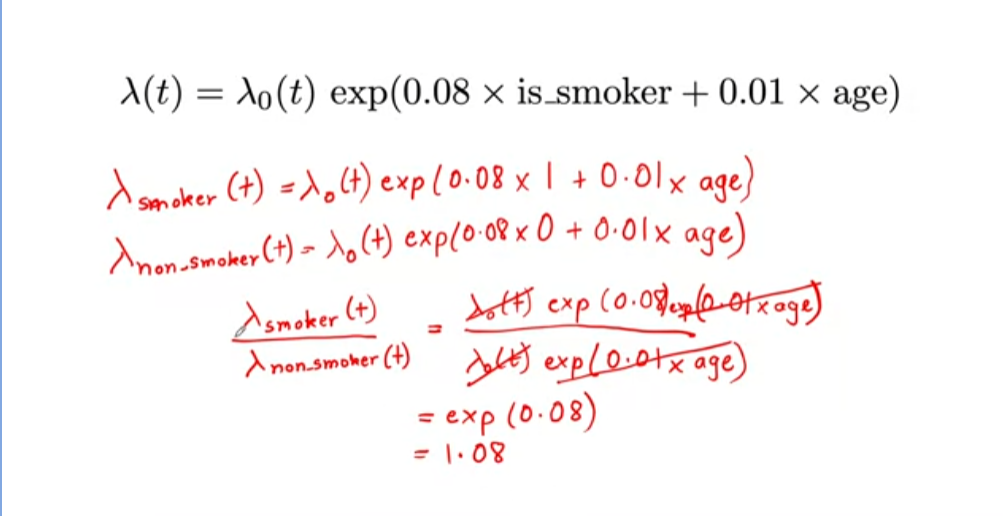 λ(t) = λ₀(t) exp(0.08 × is_smoker + 0.01 × age)
λ smoker (t) = λ₀(t) exp(0.08 x 1 + 0.01 x age)
λ non_smoker (t) = λ₀(t) exp(0.08 x 0 + 0.01 x age)
λ smoker (t) / λ non_smoker (t) = λ₀(t) exp(0.08) exp(0.01 x age) / λ₀(t) exp(0.01 x age)
= exp(0.08)
= 1.08